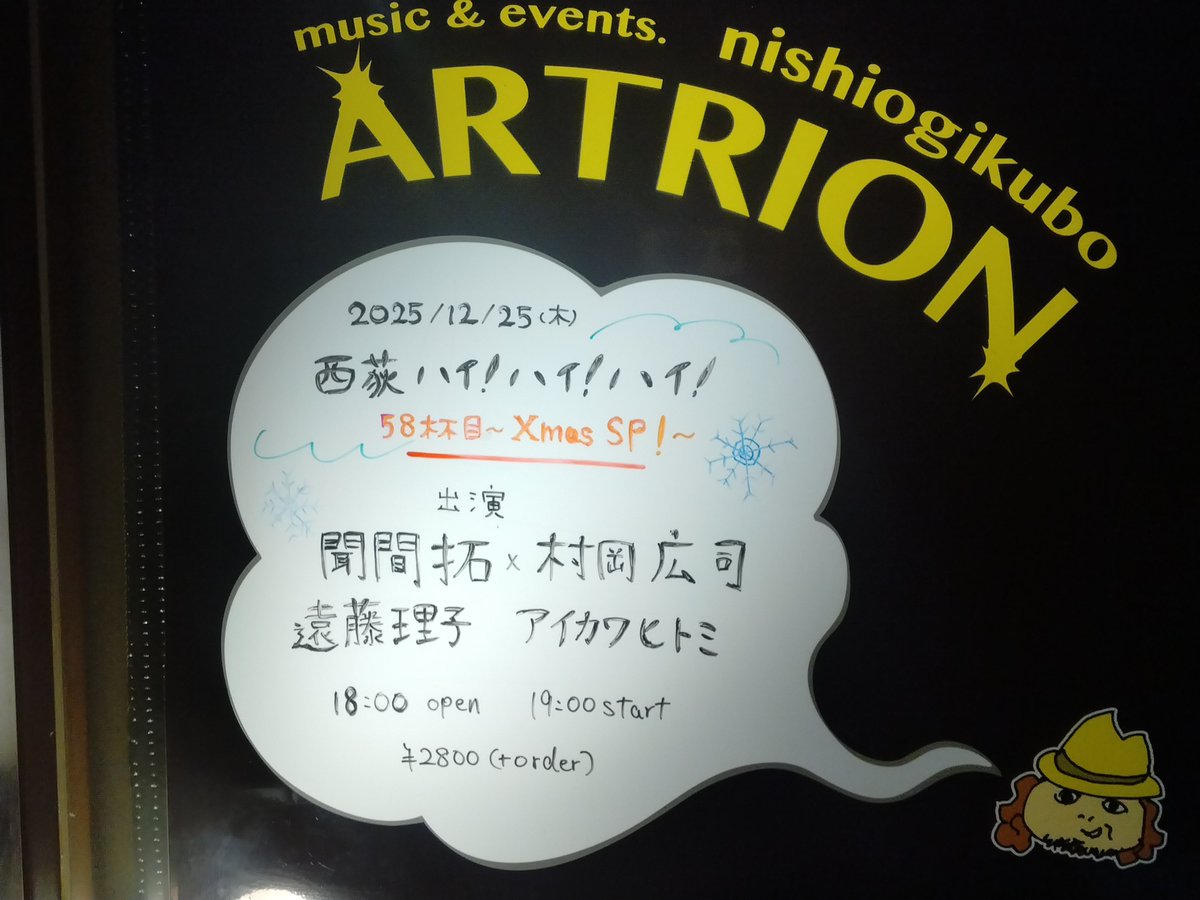 music & events. nishiogikubo
ARTRION
2025/12/25(木)
西荻ハイ!ハイ!ハイ!
58杯目~Xmas SP!~
出演
聞間拓×村岡広司
遠藤理子 アイカワヒトミ
18:00 open 19:00 start
¥2800(+order)